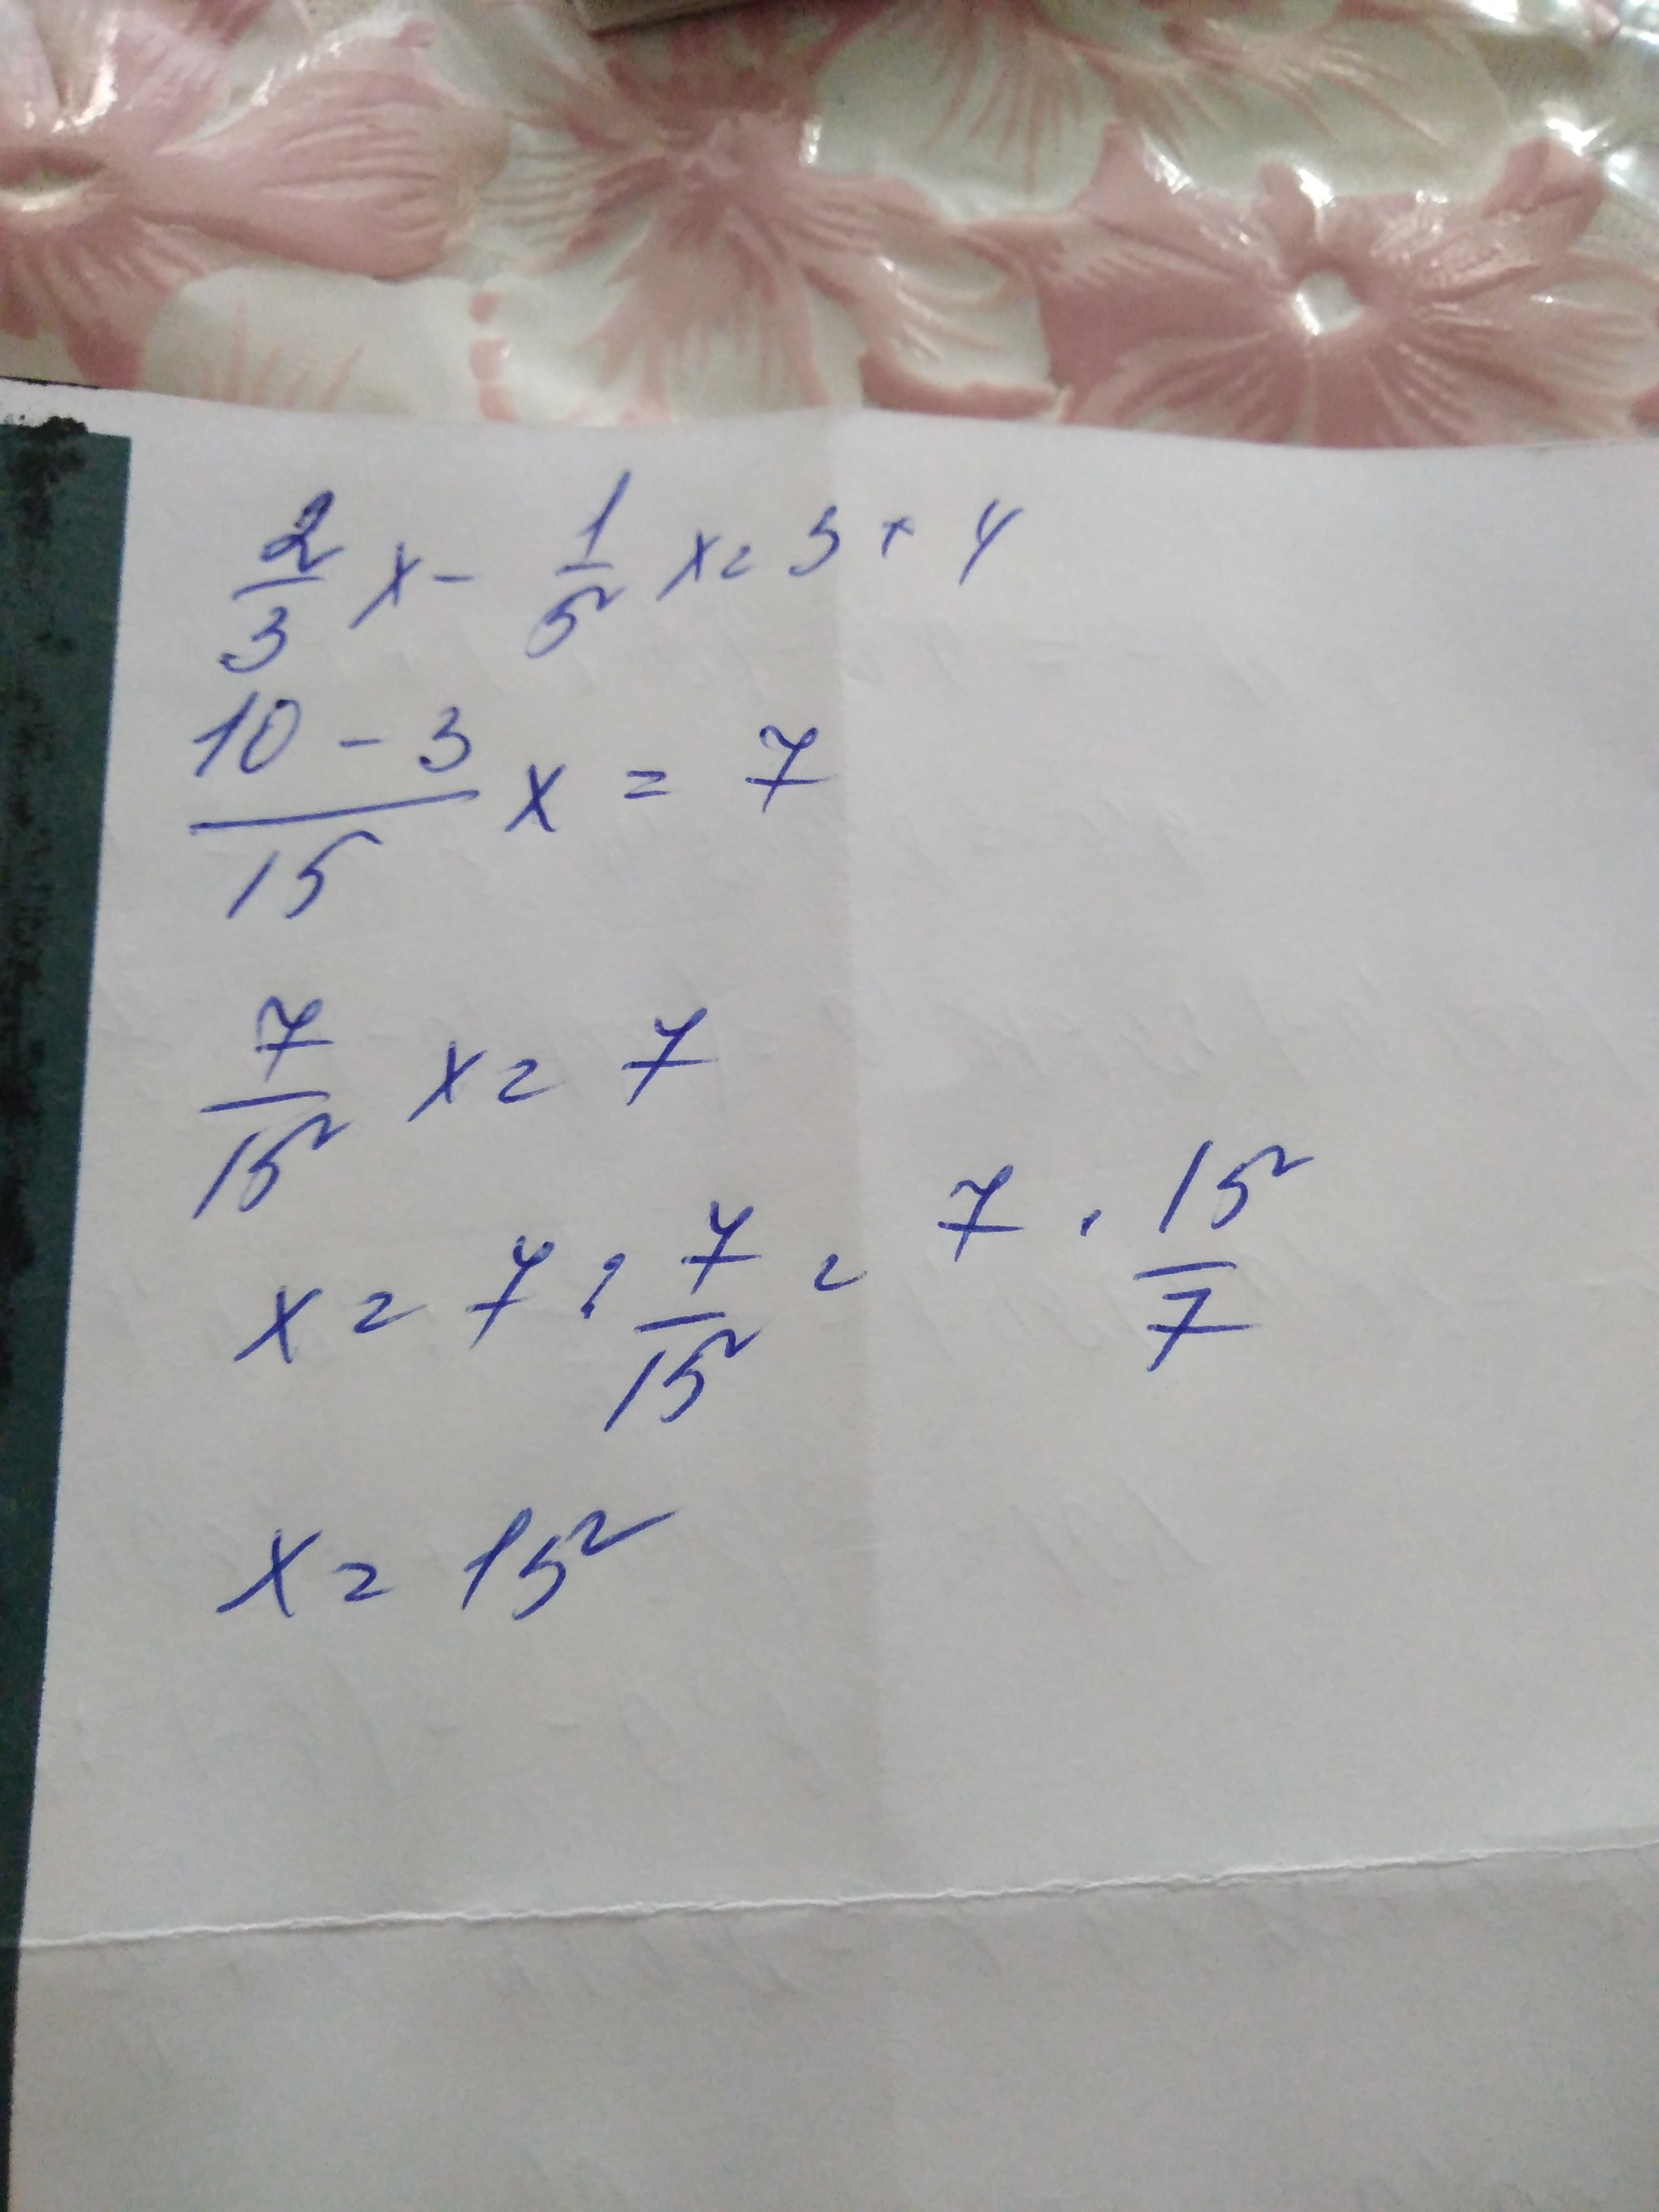 2/3 x - 1/5 x = 3 + 4
10 - 3/15 x = 7
7/15 x = 7
x = 7 : 7/15 = 7 · 15/7
x = 15